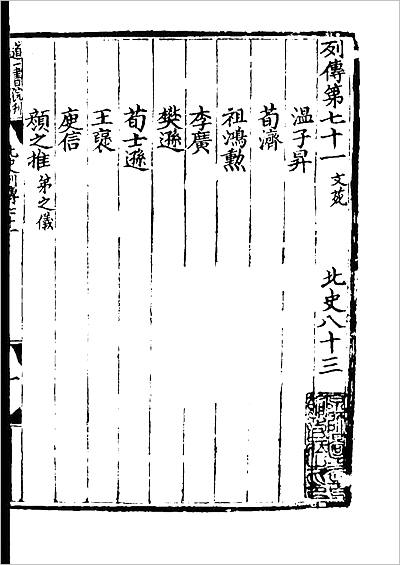 列傳第七十一 文苑 北史八十三
溫子昇
荀濟
祖鴻勳
李廣
樊遜
荀士遜
王襃
庾信
顏之推 弟之儀